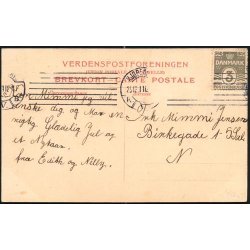 VERDENSPOSTFORENINGEN
BREVKORT - CARTE POSTALE
DANMARK
3
Mimmi jeg vil
ønske dig og Mor en
rigtig Glædelig Jul og
et Nytaar.
fra Edith og Nilly.
Frk Mimmi Jensen
Birkegade 4 5 Sal
N